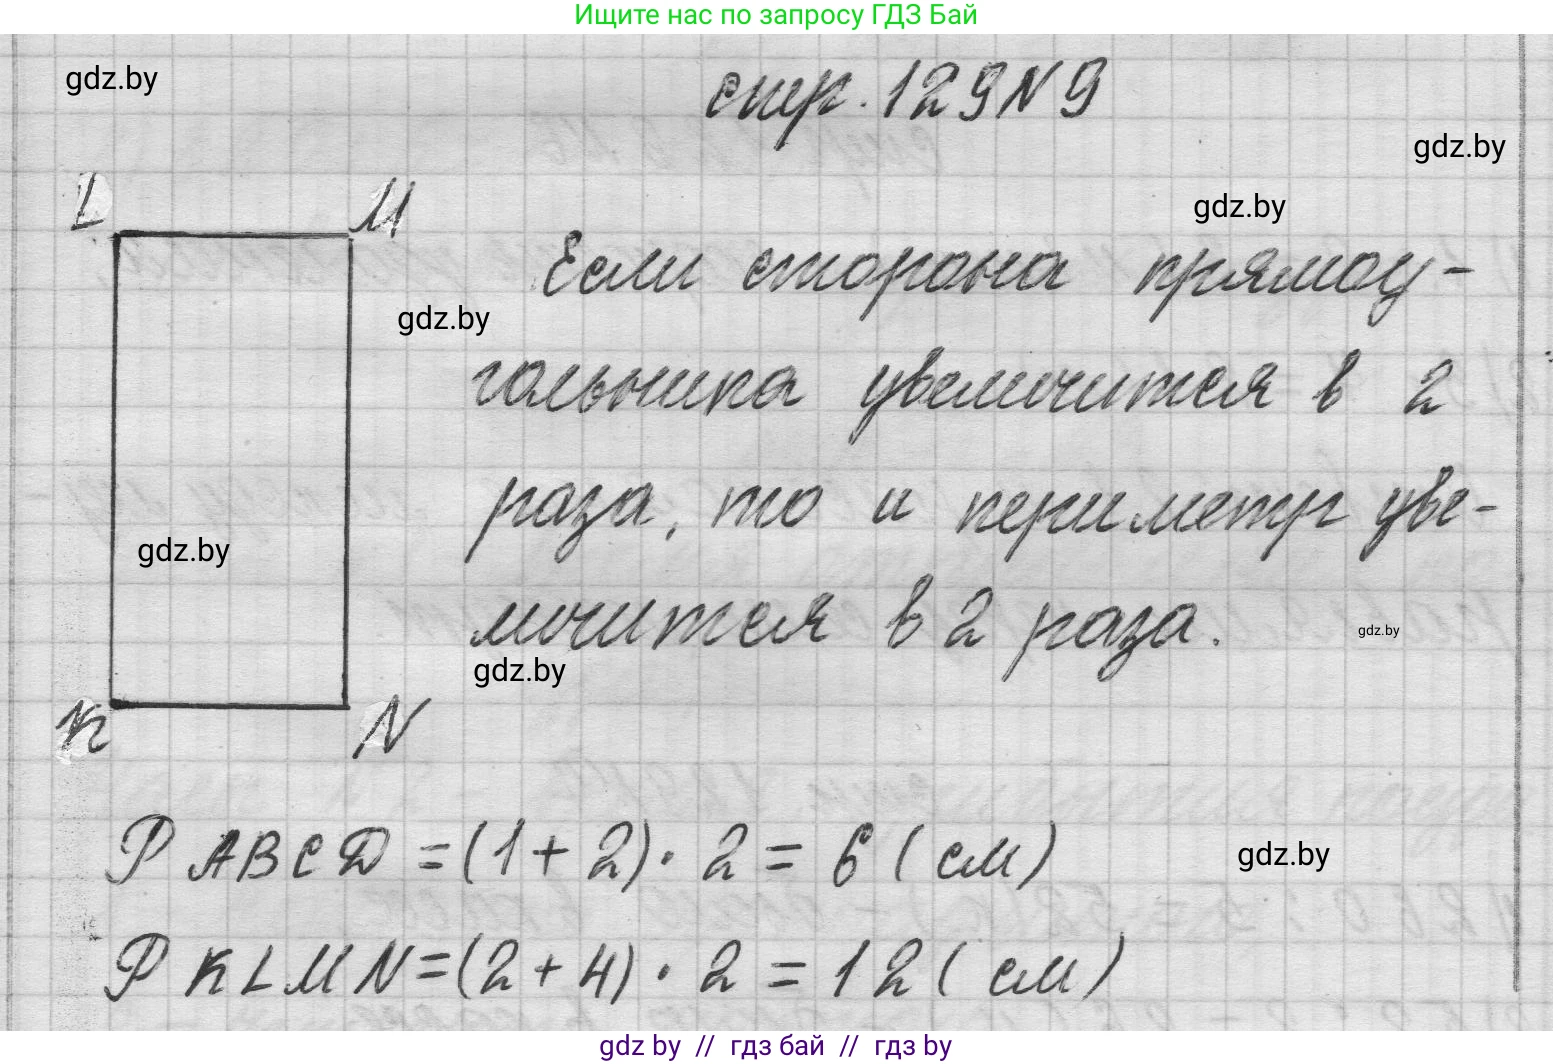 Ищите нас по запросу ГДЗ Бай
gdz.by
стр. 129 N 9
gdz.by
gdz.by
L M
Если сторона прямоу-
gdz.by
гольника увеличится в 2
раза, то и периметр уве-
gdz.by
личится в 2 раза.
gdz.by
gdz.by
K N
P ABCD = (1 + 2) · 2 = 6 (см)
gdz.by
P KLMN = (2 + 4) · 2 = 12 (см)
gdz by // гдз бай // гдз by